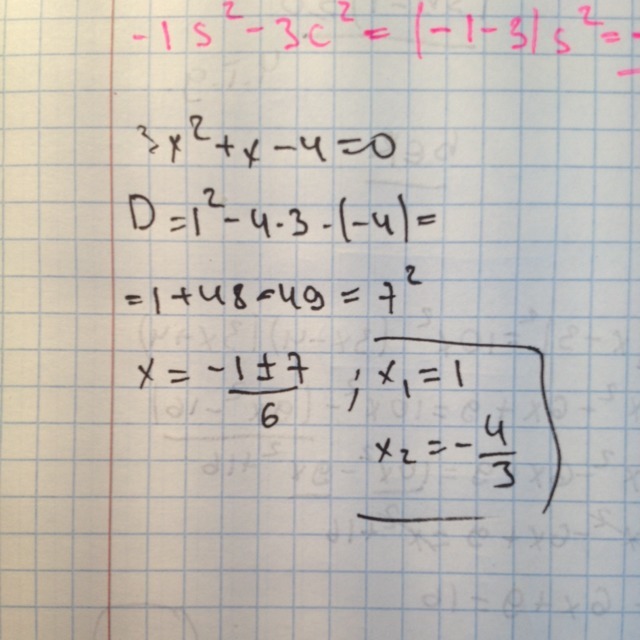 -1s² - 3·c² = (-1-3)s² =
3x² + x - 4 = 0
D = 1² - 4·3·(-4) =
= 1 + 48 = 49 = 7²
x = (-1 ± 7)/6 ; x₁ = 1
x₂ = -4/3